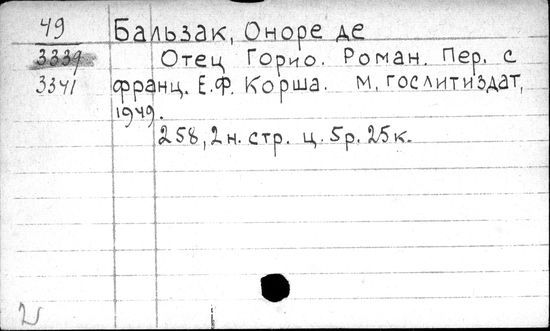 49
Бальзак, Оноре де
3339
Отец Горио. Роман. Пер. с
3341
франц. Е.Ф. Корша. М, Гослитиздат,
1949.
258, 2 н. стр. ц. 5 р. 25 к.